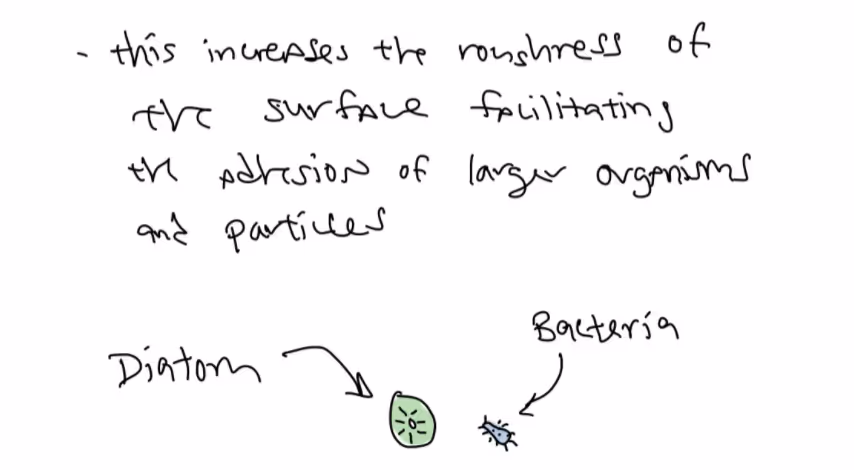 - this increases the roughness of
the surface facilitating
the adhesion of larger organisms
and particles
Bacteria
Diatom